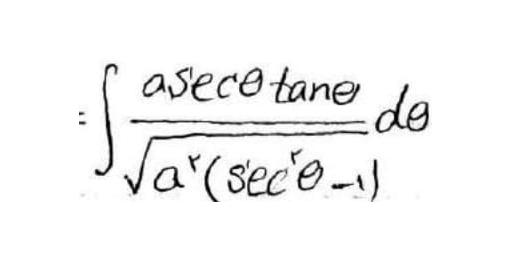 = ∫ \frac{a secθ tanθ}{\sqrt{a^۲(sec^۲θ-۱)}} dθ